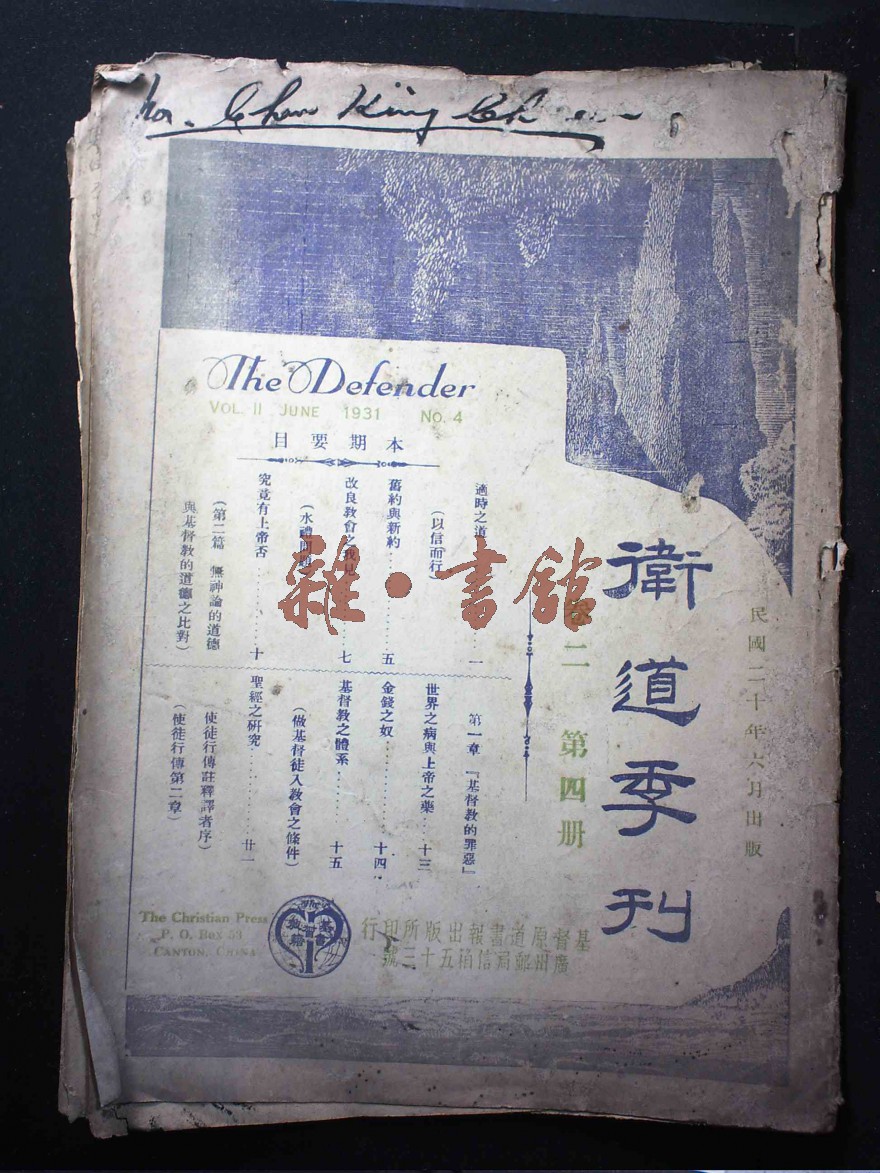 Chan King
The Defender
VOL. II JUNE 1931 No. 4
目要期本
適時之道
一
（以信而行）
舊約與新約………五
改良教會之
七
（水禮問題
究竟有上帝否………十
（第二篇 無神論的道德
與基督教的道德之比對）
第一章 『基督教的罪惡』
世界之病與上帝之藥…十三
金錢之奴………十四
基督教之體系………十五
（做基督徒入教會之條件）
聖經之研究………廿一
使徒行傳註釋譯者序）
（使徒行傳第二章）
衛道季刊
卷二 第四册
民國二十年六月出版
雜·書館
The Christian Press
P. O. Box 53
CANTON, CHINA
行印所版出報書道原督基
號三十五箱信局郵州廣